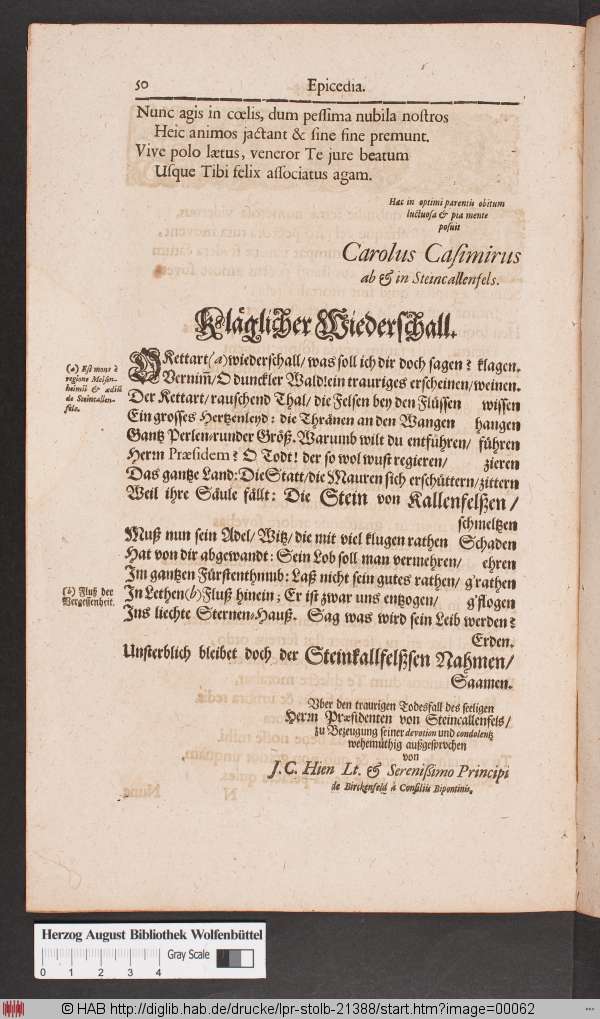 50 Epicedia.
Nunc agis in cœlis, dum peſſima nubila noſtros
Heic animos jactant & ſine fine premunt.
Vive polo lætus, veneror Te jure beatum
Uſque Tibi felix aſſociatus agam.
Hæc in optimi parentis obitum
luctuoſa & pia mente
poſuit
Carolus Caſimirus
ab & in Steincallenfels.
Kläglicher Wiederſchall.
(a) Eſt mons è
regione Meiſen-
heimii & ædiũ
de Steincallen-
fels.
O Kettart/(a) wiederſchall/ was ſoll ich dir doch ſagen? klagen.
Vernim̃/ O dunckler Wald! ein trauriges erſcheinen/ weinen.
Der Kettart/ rauſchend Thal/ die Felſen bey den Flüſſen wiſſen
Ein groſſes Hertzenleyd: die Thränen an den Wangen hangen
Gantz Perlen-runder Gröſ. Warumb wilt du entführen/ führen
Herrn Præſidem? O Todt! der ſo wol wuſt regieren/ zieren
Das gantze Land: Die Statt/ die Mauren ſich erſchüttern/ zittern
Weil ihre Säule fällt: Die Stein von Kallenfelßen/
ſchmeltzen
Muß nun ſein Adel/ Witz/ die mit viel klugen rathen Schaden
Hat von dir abgewandt: Sein Lob ſoll man vermehren/ ehren
Im gantzen Fürſtenthumb: Laß nicht ſein gutes rathen/ g'rathen
(b) Fluß der
Vergeſſenheit.
In Lethen (b) Fluß hinein; Er iſt zwar uns entzogen/ g'flogen
Ins liechte Sternen-Hauß. Sag was wird ſein Leib werden?
Erden.
Unſterblich bleibet doch der Steinkallfelßſen Nahmen/
Saamen.
Vber den traurigen Todesfall des ſeeligen
Herrn Præſidenten von Steincallenfels/
zu Bezeugung ſeiner devotion und condolentz
wehemüthig außgeſprochen
von
J. C. Hien Lt. & Sereniſſimo Principi
de Birckenfeld à Conſiliis Bipontinis.
Herzog August Bibliothek Wolfenbüttel
0 1 2 3 4 Gray Scale
© HAB http://diglib.hab.de/drucke/lpr-stolb-21388/start.htm?image=00062